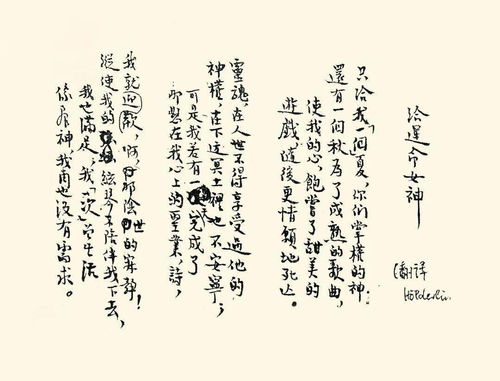 給運命女神
(翻譯
Hölderlin.
只給我「一」個夏,你們掌權的神:
還有一個秋為了成熟的歌曲,
使我的心,飽嘗了甜美的
遊戲,隨後更情願地死亡。
靈魂,在人世不得享受過他的
神權,在下這冥土裡也不安寧;
可是我若有一完成了
那懸在我心上的聖業,詩,
我就迎歡,啊,那陰世的寂靜!
縱使我的絃琴不陪伴我下去,
我也滿足,我「一次」曾生活
像眾神我再也沒有需求。